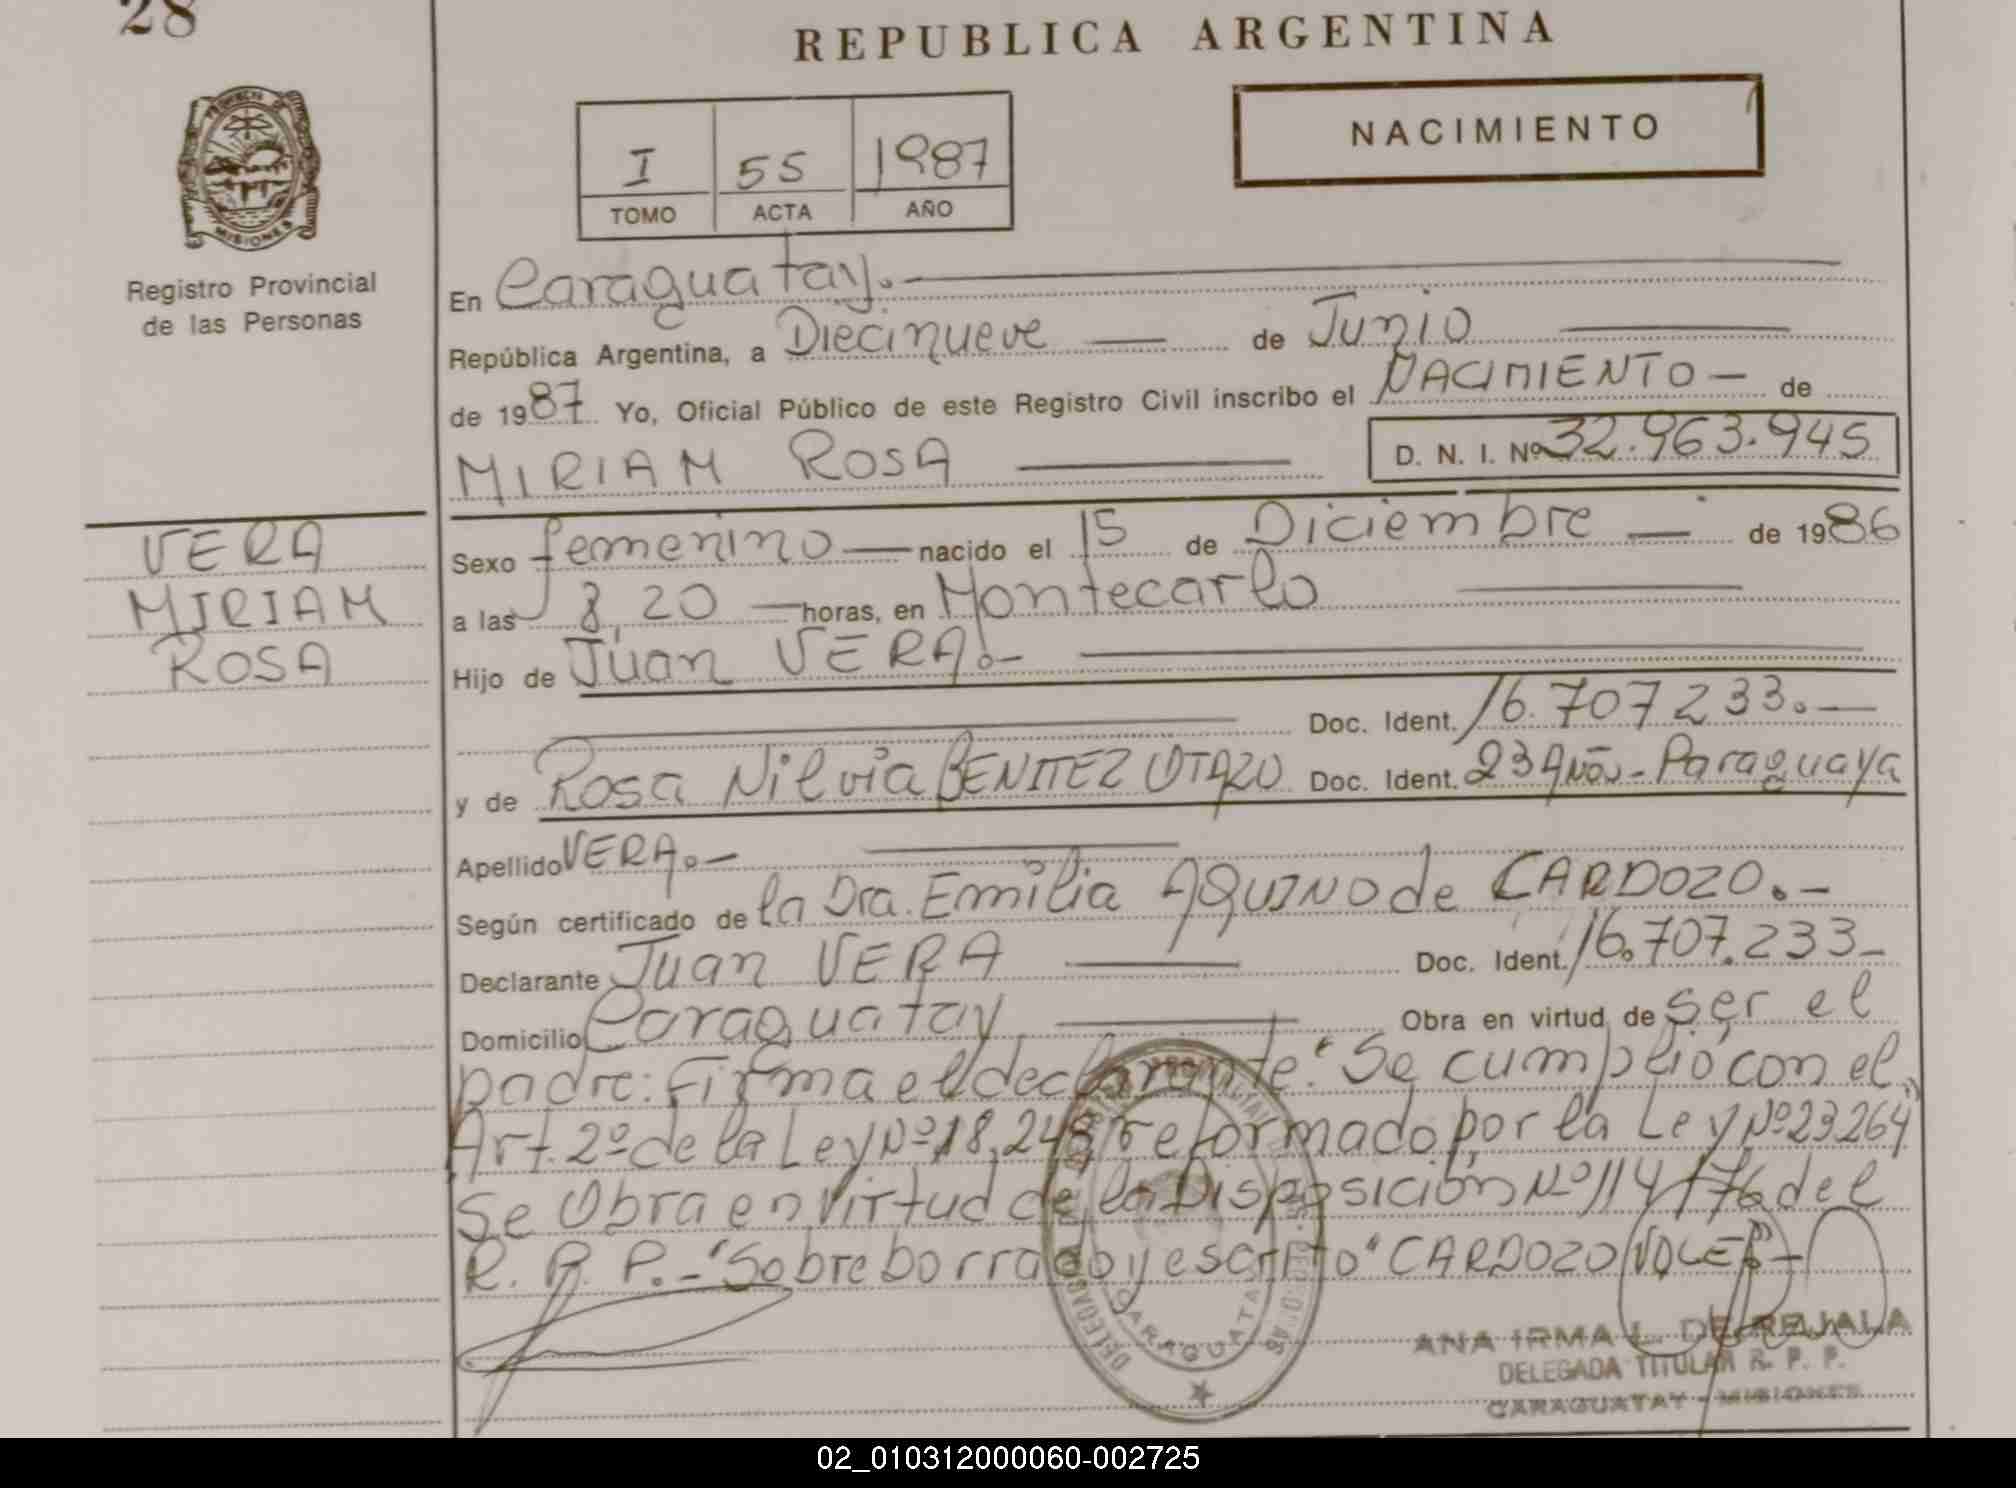 28
REPUBLICA ARGENTINA
NACIMIENTO
I 55 1987
TOMO ACTA AÑO
MISIONES
Registro Provincial
de las Personas
En Caraguatay.
República Argentina, a Diecinueve de Junio
de 1987 Yo, Oficial Público de este Registro Civil inscribo el NACIMIENTO — de
MIRIAM ROSA D. N. I. Nº 32.963.945
VERA
MIRIAM
ROSA
Sexo femenino — nacido el 15 de Diciembre — de 1986
a las 8,20 — horas, en Montecarlo
Hijo de Juan VERA.-
Doc. Ident. 16.707233.—
y de Rosa Nilvia BENITEZ OTAZU Doc. Ident. 23 Años - Paraguaya
Apellido VERA.-
Según certificado de la Dra. Emilia AQUINO de CARDOZO.-
Declarante Juan VERA Doc. Ident. 16.707.233-
Domicilio Caraguatay Obra en virtud de ser el
padre: Firma el declarante. "Se cumplió con el
Art. 2º de la Ley Nº 18,248, reformado por la Ley Nº 23264"
Se Obra en virtud de la Disposición Nº 114/76 del
R. P. P. - "Sobre borrado y escrito" CARDOZO VALE" -
CARAGUATAY
ANA IRMA L. DE REJALA
DELEGADA TITULAR R. P. P.
CARAGUATAY - MISIONES
02_010312000060-002725